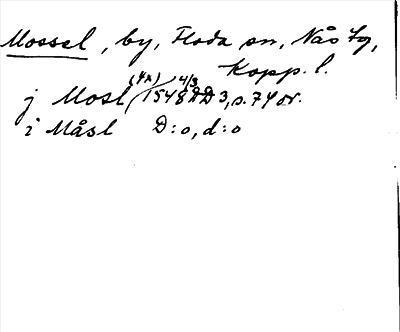 Mossel, by, Floda sn, Nås tg,
Kopp. l.
j Mosl (KA) 4/3 1548 ÄD 3, s. 74 or.
i Måsl D:o, d:o